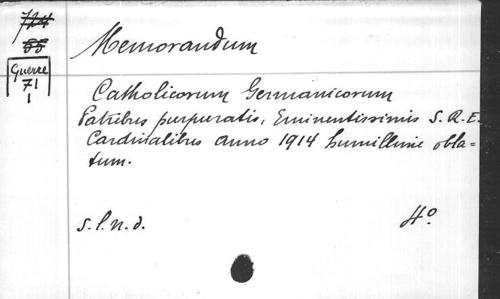 724
55
Guerre
71
1
Memorandum
Catholicorum Germanicorum
Patribus purpuratis, Eminentissimis S.R.E.
Cardinalibus anno 1914 humillime obla=
tum.
s.l.n.d.
4°